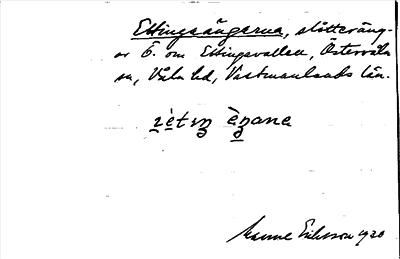 Ettingsängarna, slåtteräng-
ar Ö. om Ettingsvallen, Östervåla
sn, Våla hd, Västmanlands län.
Manne Eriksson 1920